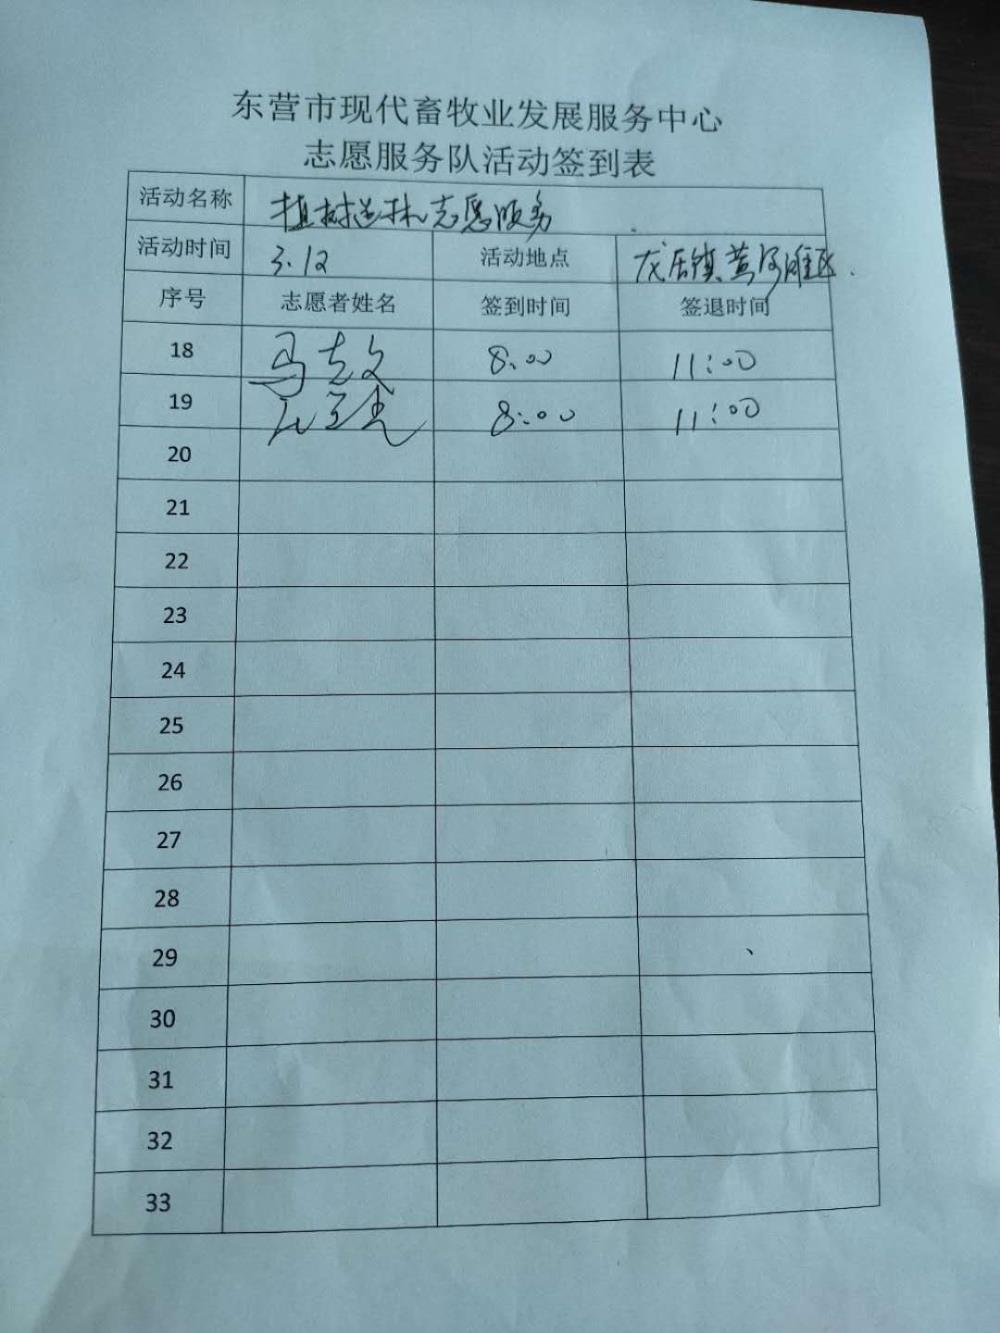 东营市现代畜牧业发展服务中心
志愿服务队活动签到表
活动名称 植树造林志愿服务
活动时间 3.12 活动地点 龙居镇黄河滩区.
序号 志愿者姓名 签到时间 签退时间
18 马志文 8:00 11:00
19 8:00 11:00
20
21
22
23
24
25
26
27
28
29
30
31
32
33